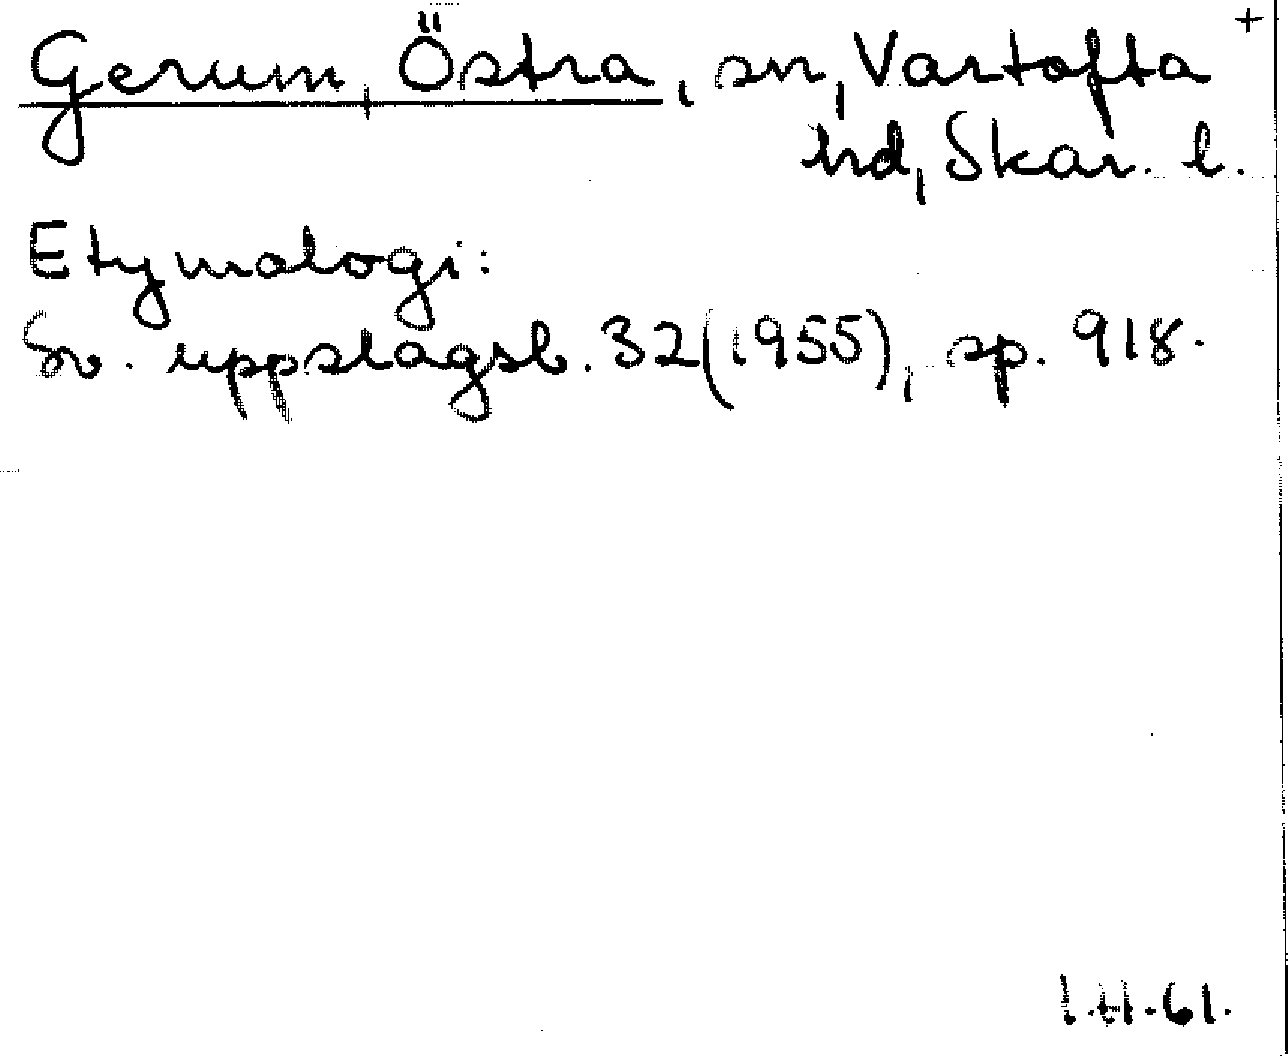 +
Gerum, Östra, sn, Vartofta
hd, Skar. l.
Etymologi:
Sv. uppslagsb. 32(1955), sp. 918.